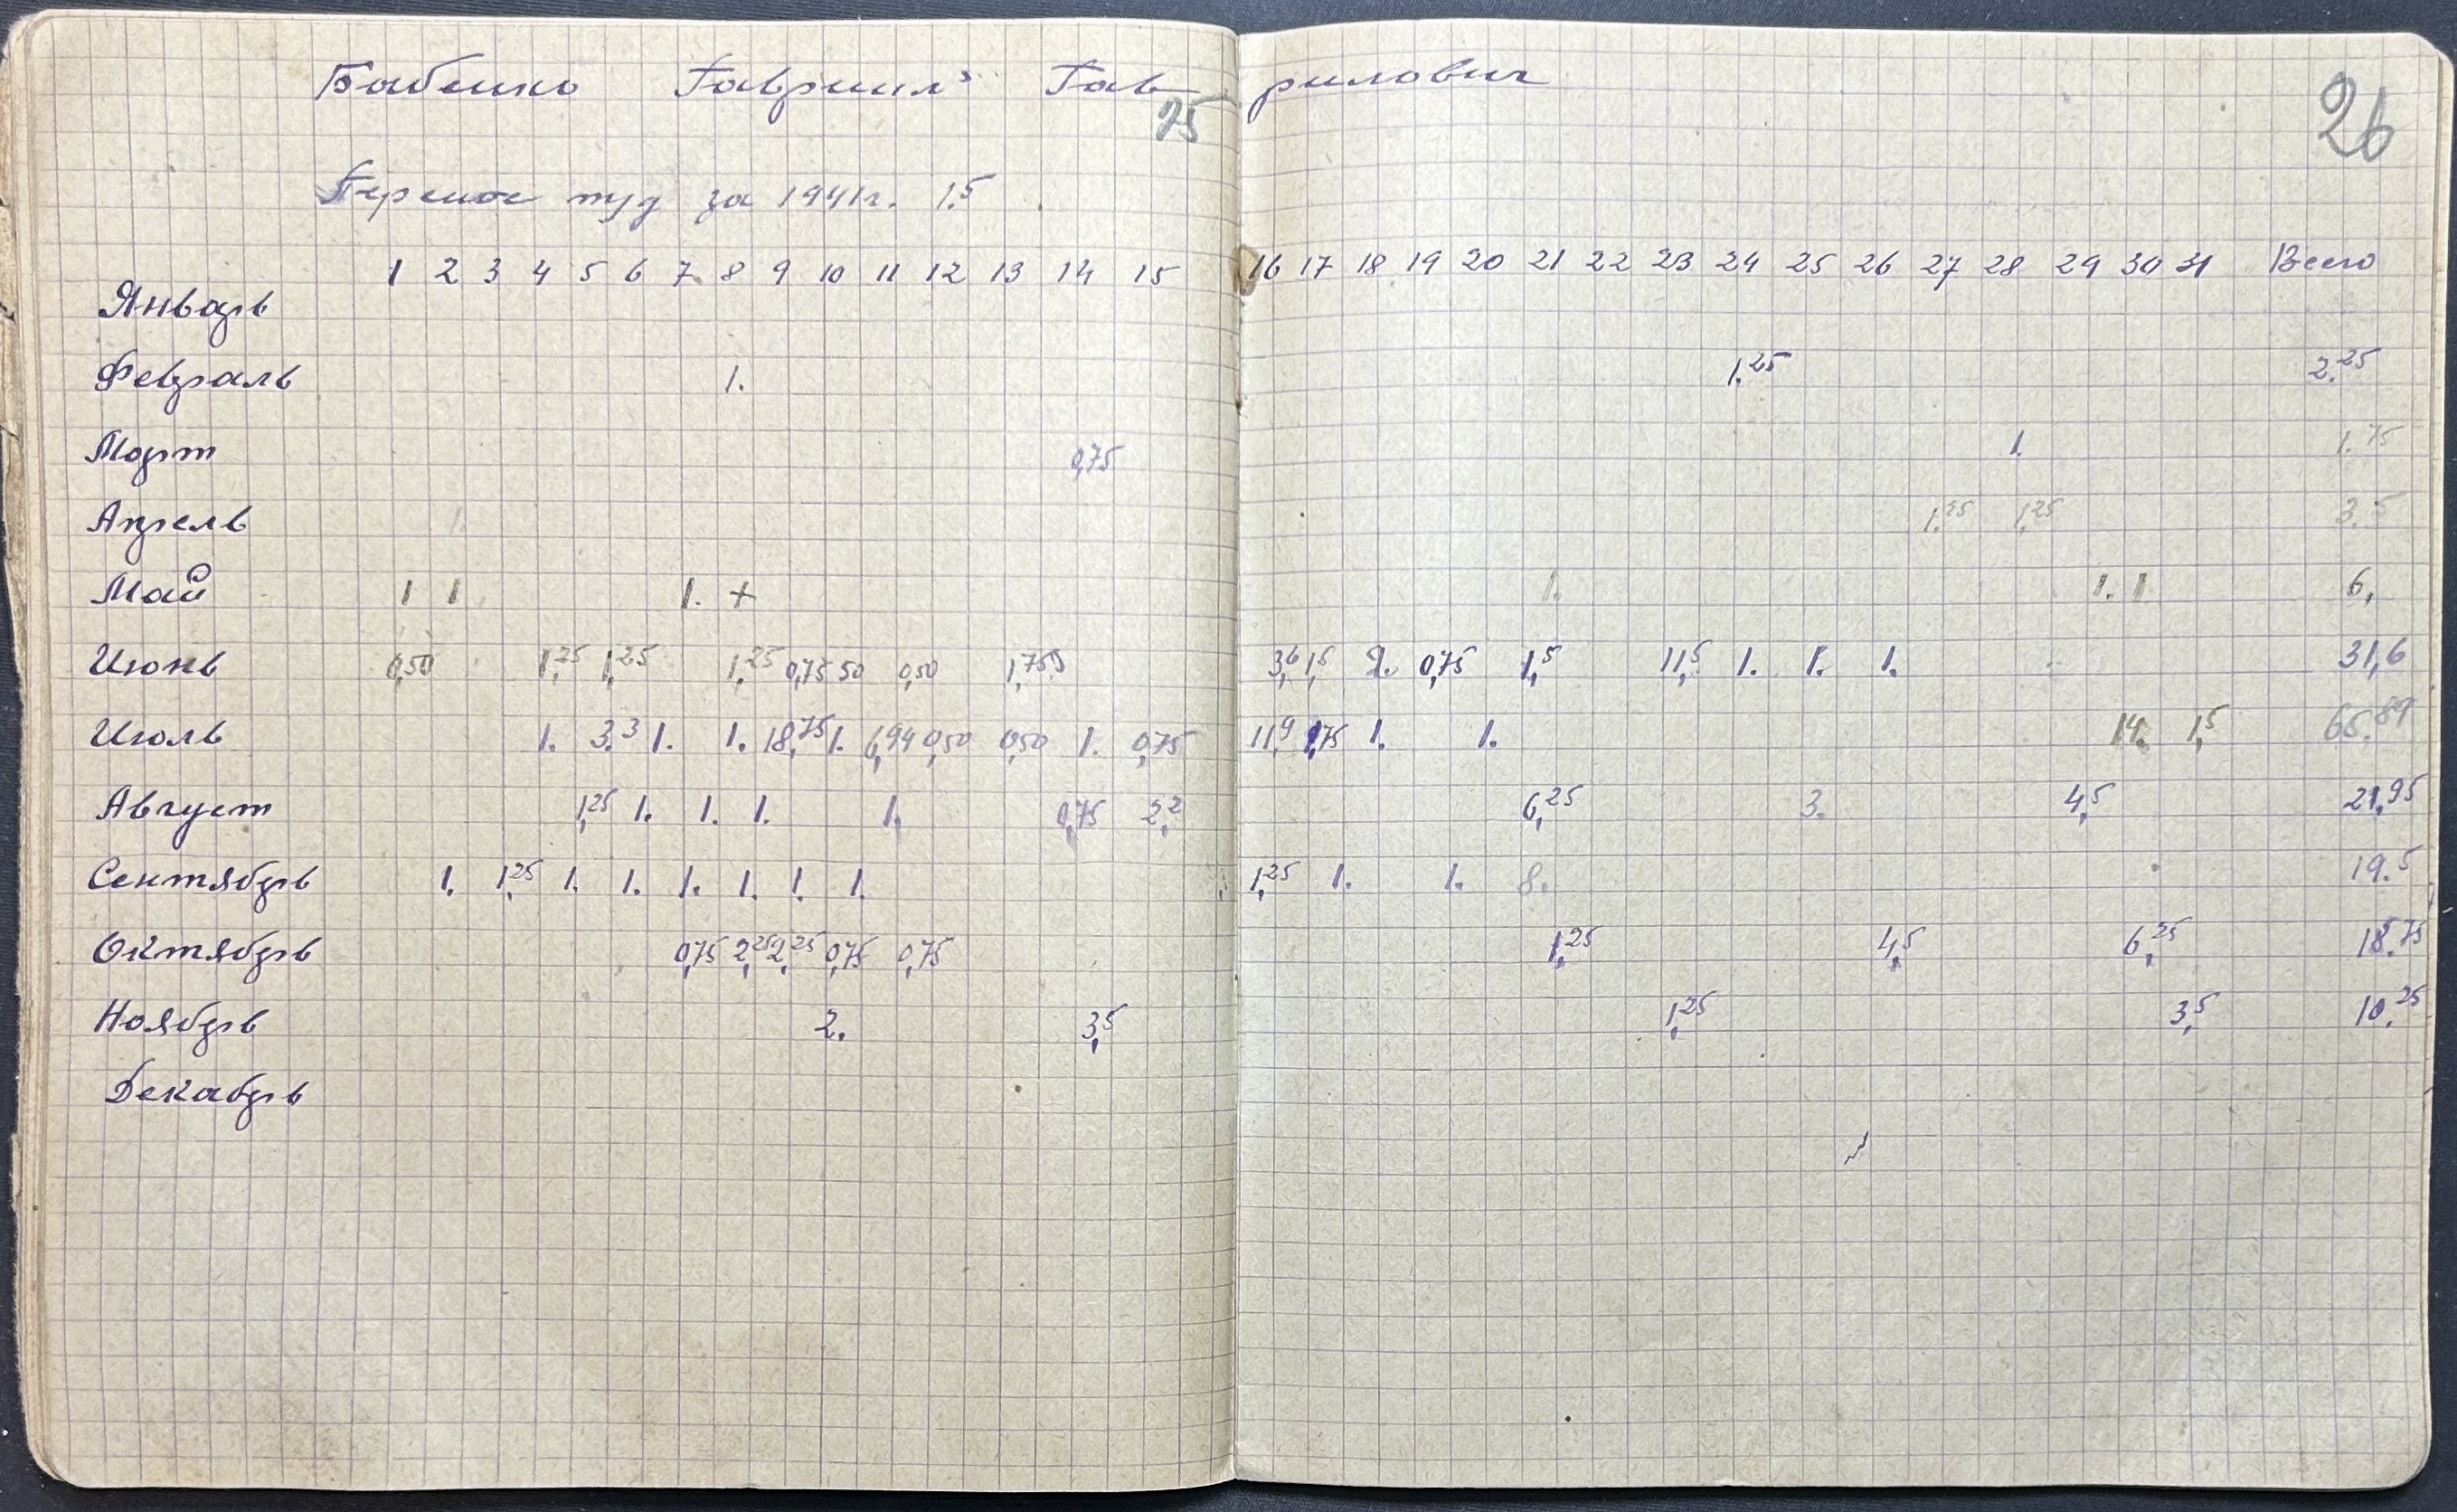 Бабенко Гавриил Гав риилович
25 26
Перенос труд за 1941г. 1.5
1 2 3 4 5 6 7 8 9 10 11 12 13 14 15 16 17 18 19 20 21 22 23 24 25 26 27 28 29 30 31 Всего
Январь
Февраль 1. 1,25 2.25
Март 0,75 1. 1.75
Апрель 1. 1,25 1,25 3.5
Май 1 1 1. + 1. 1. 1 6,
Июнь 0,50 1,25 1,25 1,25 0,75 50 0,50 3,6 1,5 2. 0,75 1,5 11,5 1. 1. 1. 31,6
Июль 1. 3.3 1. 1. 18,75 1. 6,94 0,50 0,50 1. 0,75 11,9 1,75 1. 1. 14. 1,5 65.89
Август 1,25 1. 1. 1. 1. 0,75 2,2 6,25 3. 4,5 21,95
Сентябрь 1. 1,25 1. 1. 1. 1. 1. 1. 1,25 1. 1. 8. 19.5
Октябрь 0,75 2,25 2,25 0,75 0,75 1,25 4,5 6,25 18.75
Ноябрь 2. 3,5 1,25 3,5 10.25
Декабрь